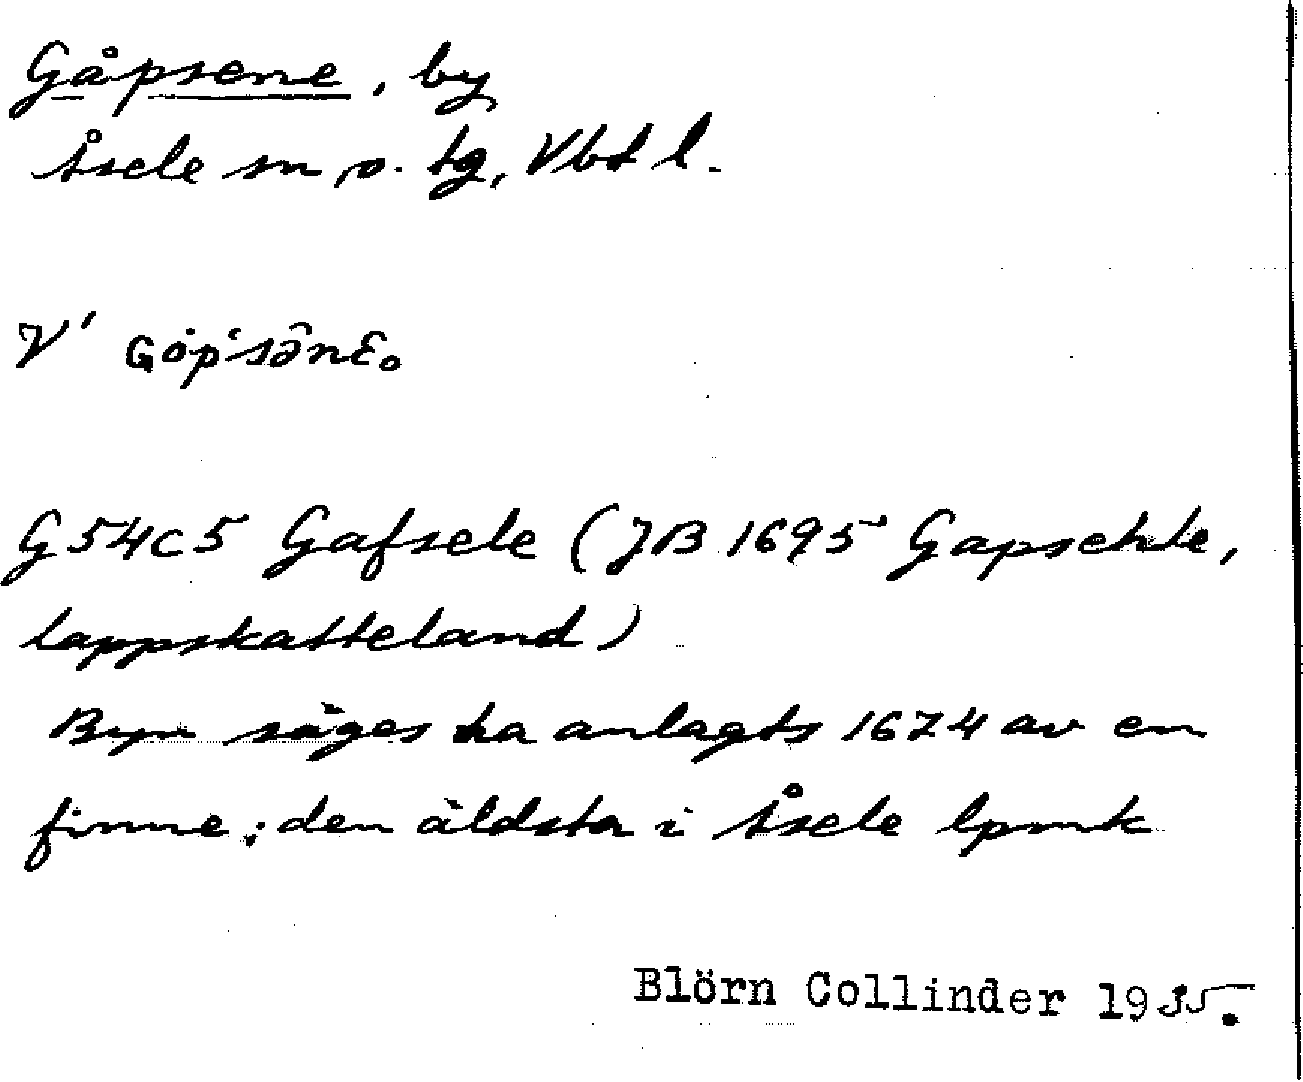 Gåpsene, by
Åsele sn o. tg, Vbt l.
V' Gȯp'sånɛ.
G54c5 Gafsele (JB 1695 Gapsehle,
lappskatteland)
Byn säges ha anlagts 1674 av en
finne; den äldsta i Åsele lpmk
Blörn Collinder 1935.